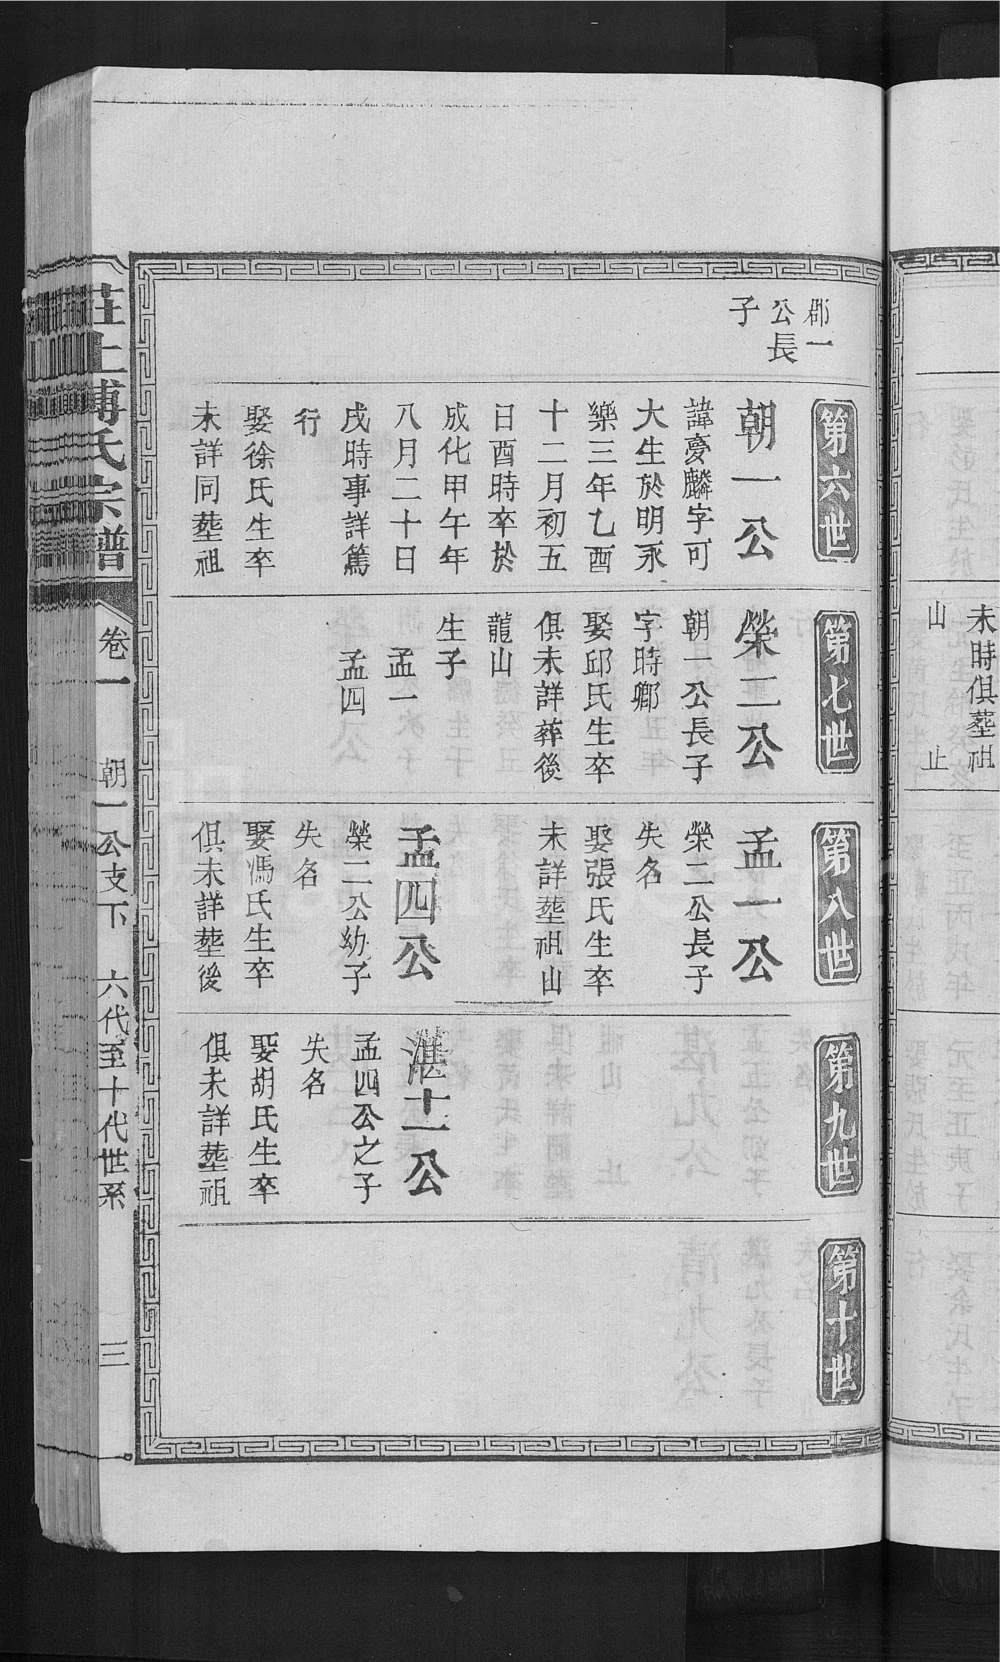 未時俱塟祖
山 止
郡一
公長
子
第六世
朝一公
諱夢麟字可
大生於明永
樂三年乙酉
十二月初五
日酉時卒於
成化甲午年
八月二十日
戌時事詳篤
行
娶徐氏生卒
未詳同塟祖
第七世
榮二公
朝一公長子
字時卿
娶邱氏生卒
俱未詳葬後
龍山
生子
孟一
孟四
第八世
孟一公
榮二公長子
失名
娶張氏生卒
未詳塟祖山
孟四公
榮二公幼子
失名
娶馮氏生卒
俱未詳塟後
第九世
湛十一公
孟四公之子
失名
娶胡氏生卒
俱未詳塟祖
第十世
莊上傅氏宗譜
卷一
朝一公支下 六代至十代世系
三